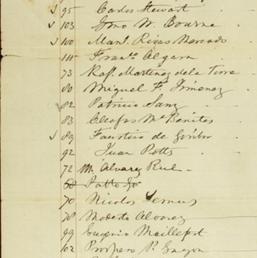 √ 95 Carlos Stewart
√ 103 Jno W. Bourne
√ 100 Manl. Rivas Mercado
110 Franco Algara
73 Raf. Martinez de la Torre
80 Miguel F. Jimenez
82 Patricio Sanz
83 Cleofas M. Benites
√ 89 Faustino de Goribar
92 Juan Potts
72 M. Alvarez Rul
70 Nicolas Lemus
78 Modesto Alvarez
99 Eugenio Maillefert
102 Prospero P.